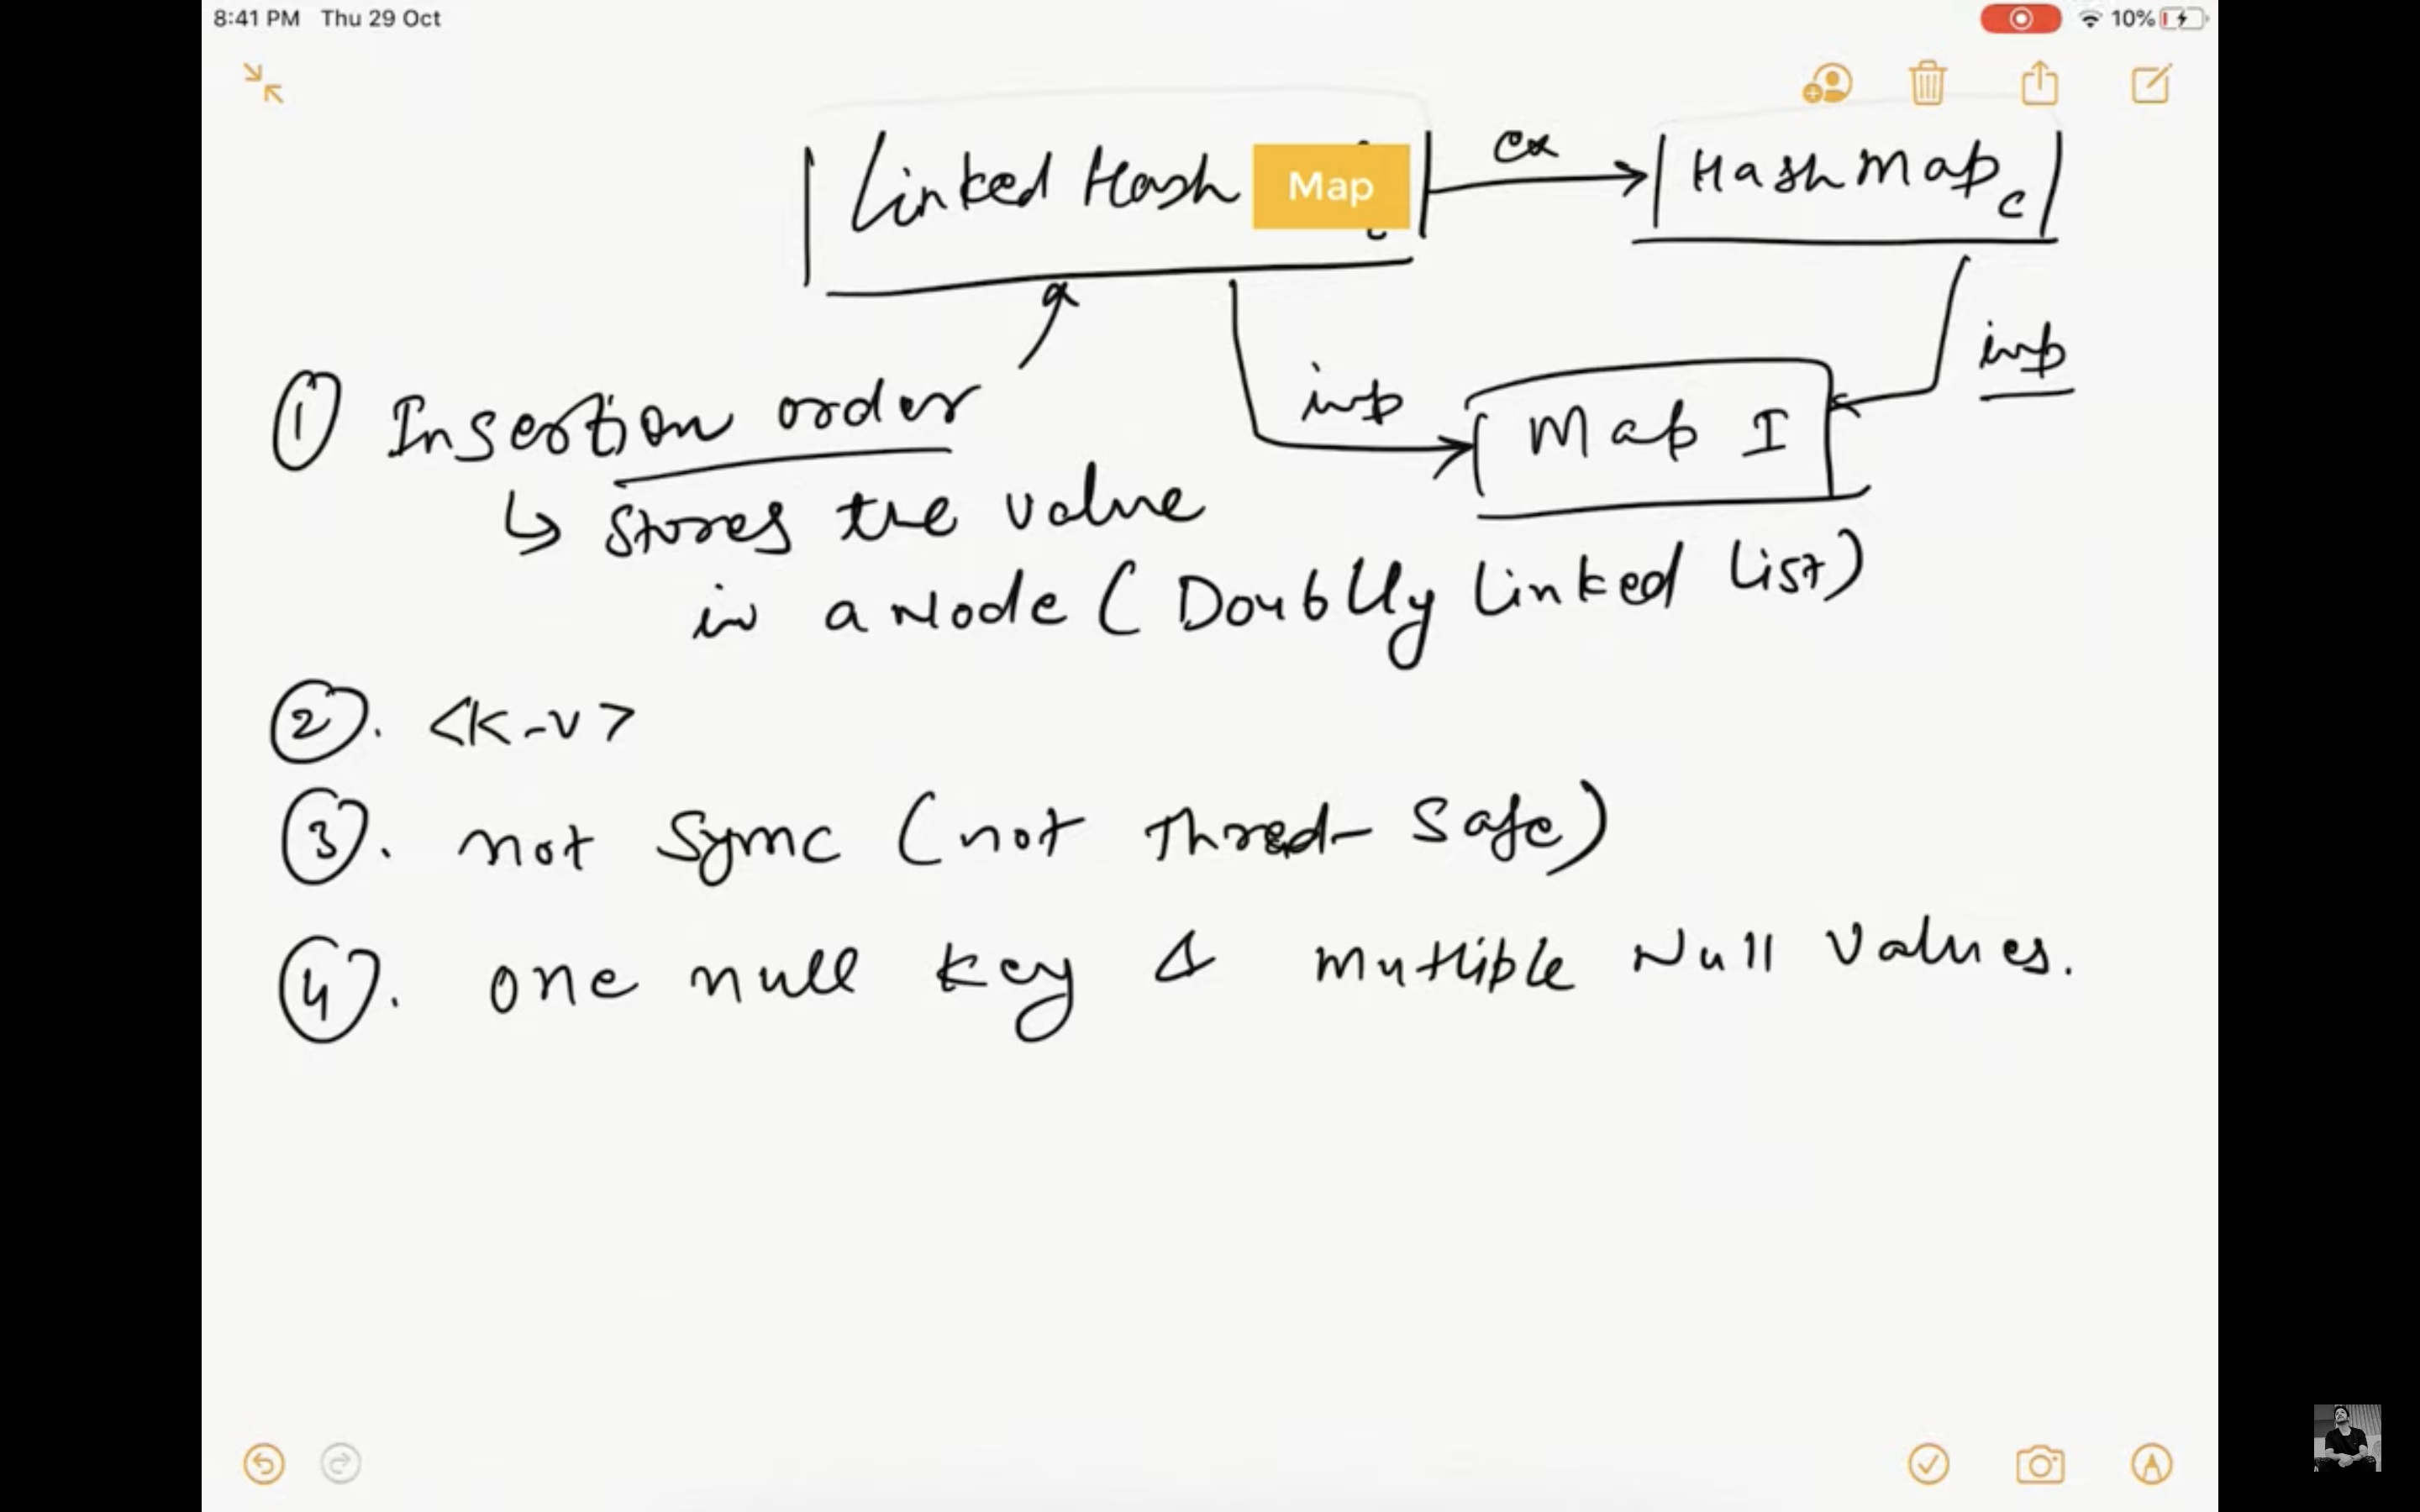 8:41 PM Thu 29 Oct
10%
Linked Hash Map
ex
HashMap c
imp
imp
Map I
① Insertion order
↳ Stores the value
in a Node (Doublly Linked List)
②. <K-V>
③. not Sync (not Thred-Safe)
④. one null key & mutliple Null Values.